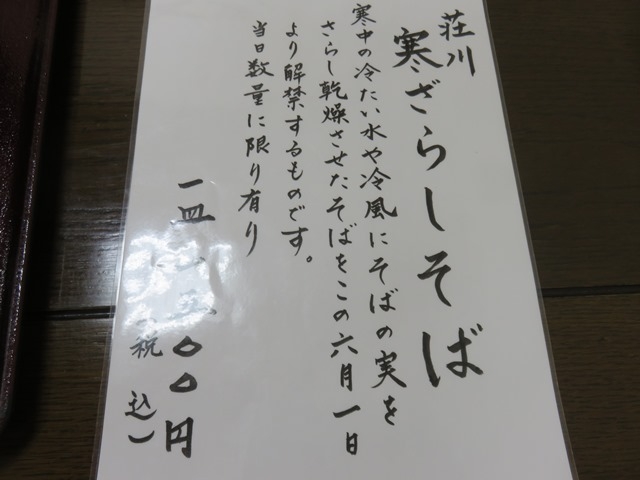 荘川
寒ざらしそば
寒中の冷たい水や冷風にそばの実を
さらし乾燥させたそばをこの六月一日
より解禁するものです。
当日数量に限り有り
一皿 〇〇円
(税込)